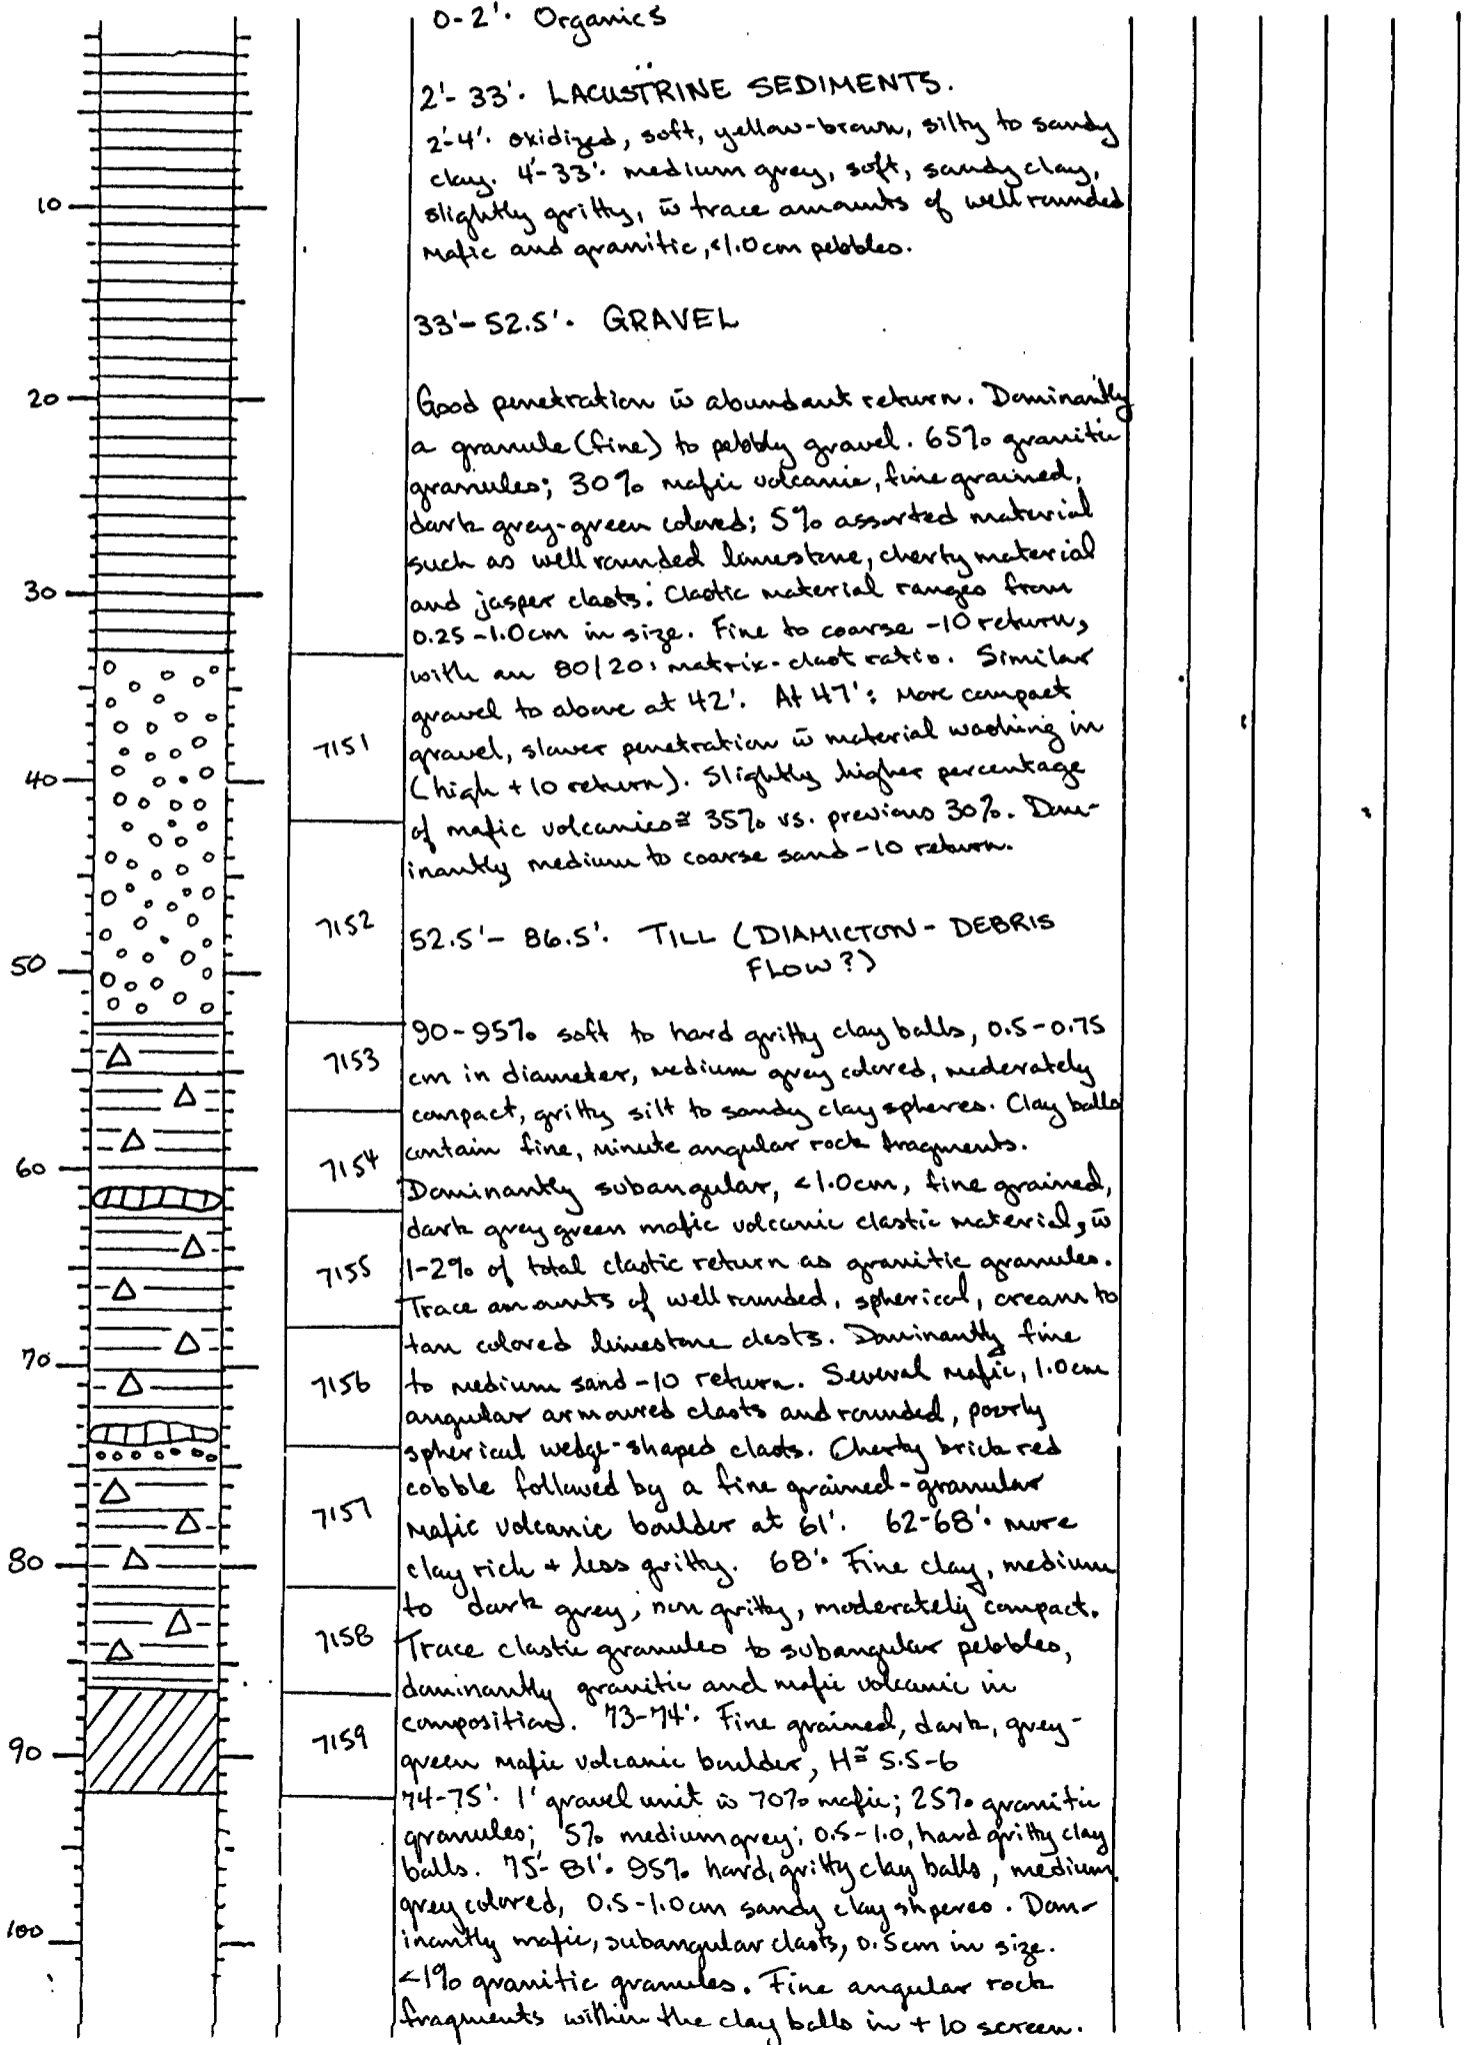 0-2'. Organics
2'-33'. LACUSTRINE SEDIMENTS.
2'-4'. oxidized, soft, yellow-brown, silty to sandy
clay. 4'-33'. medium grey, soft, sandy clay,
10
slightly gritty, w̄ trace amounts of well rounded
mafic and granitic, <1.0cm pebbles.
33'-52.5'. GRAVEL
20
Good penetration w̄ abundant return. Dominantly
a granule (fine) to pebbly gravel. 65% granitic
granules; 30% mafic volcanic, fine grained,
dark grey-green colored; 5% assorted material
such as well rounded limestone, cherty material
30
and jasper clasts. Clastic material ranges from
0.25-1.0cm in size. Fine to coarse -10 return,
with an 80/20, matrix-clast ratio. Similar
gravel to above at 42'. At 47': More compact
7151
gravel, slower penetration w̄ material washing in
40
(high +10 return). Slightly higher percentage
of mafic volcanics ≅ 35% vs. previous 30%. Dom-
inantly medium to coarse sand -10 return.
7152
52.5'-86.5'. TILL (DIAMICTON - DEBRIS
FLOW?)
50
90-95% soft to hard gritty clay balls, 0.5-0.75
7153
cm in diameter, medium grey colored, moderately
compact, gritty silt to sandy clay spheres. Clay balls
contain fine, minute angular rock fragments.
60
7154
Dominantly subangular, <1.0cm, fine grained,
dark grey green mafic volcanic clastic material, w̄
7155
1-2% of total clastic return as granitic granules.
Trace amounts of well rounded, spherical, cream to
tan colored limestone clasts. Dominantly fine
70
7156
to medium sand -10 return. Several mafic, 1.0cm
angular armoured clasts and rounded, poorly
spherical wedge-shaped clasts. Cherty brick red
cobble followed by a fine grained-granular
7157
mafic volcanic boulder at 61'. 62-68'. more
80
clay rich + less gritty. 68'. Fine clay, medium
to dark grey, non gritty, moderately compact.
7158
Trace clastic granules to subangular pebbles,
dominantly granitic and mafic volcanic in
composition. 73-74'. Fine grained, dark, grey-
90
7159
green mafic volcanic boulder, H≅ 5.5-6
74-75'. 1' gravel unit w̄ 70% mafic; 25% granitic
granules; 5% medium grey; 0.5-1.0, hard gritty clay
balls. 75'-81'. 95% hard, gritty clay balls, medium
grey colored, 0.5-1.0cm sandy clay shperes. Dom-
100
inantly mafic, subangular clasts, 0.5cm in size.
<1% granitic granules. Fine angular rock
fragments within the clay balls in +10 screen.